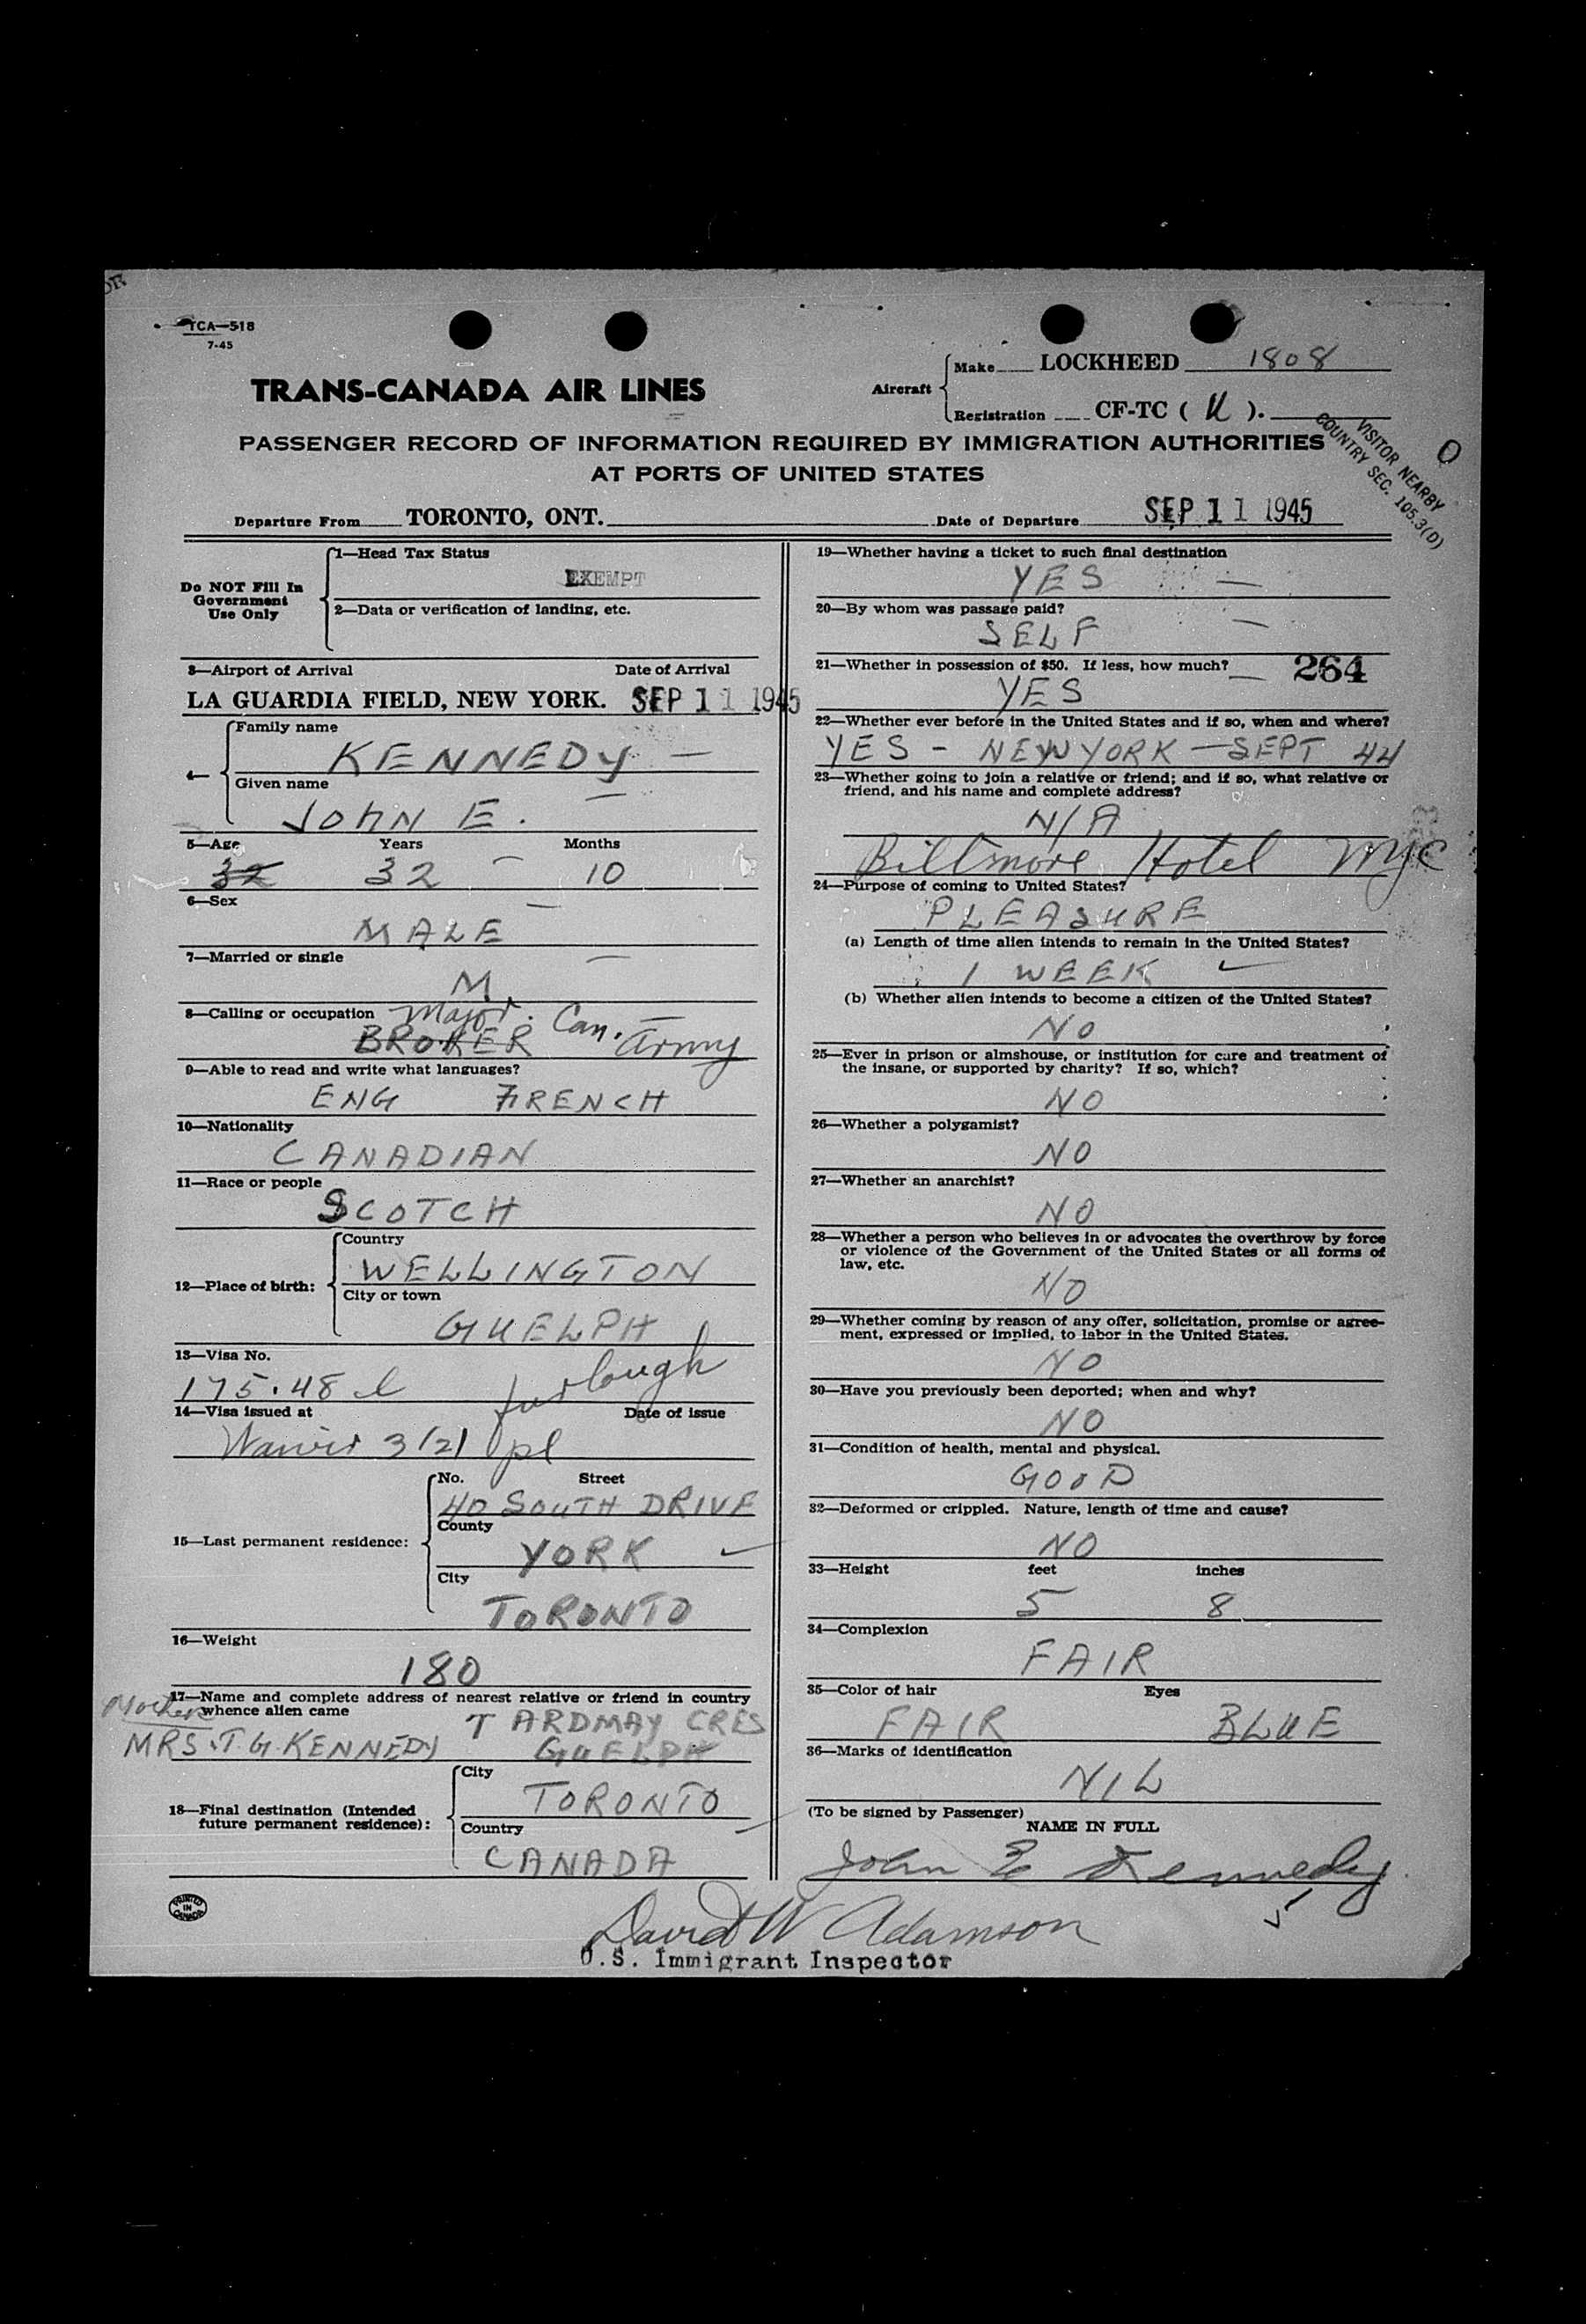 TCA—518
7-45
TRANS-CANADA AIR LINES
Aircraft
Make LOCKHEED 1808
Registration CF-TC ( U ).
PASSENGER RECORD OF INFORMATION REQUIRED BY IMMIGRATION AUTHORITIES
AT PORTS OF UNITED STATES
VISITOR NEARBY
COUNTRY SEC. 105.3(D)
Departure From TORONTO, ONT. Date of Departure SEP 11 1945
Do NOT Fill In
Government
Use Only
1—Head Tax Status
EXEMPT
2—Data or verification of landing, etc.
3—Airport of Arrival Date of Arrival
LA GUARDIA FIELD, NEW YORK. SEP 11 1945
4—
Family name
KENNEDY
Given name
JOHN E.
5—Age Years Months
32 32 10
6—Sex
MALE
7—Married or single
M
8—Calling or occupation Major. Can. Army
BROKER
9—Able to read and write what languages?
ENG FRENCH
10—Nationality
CANADIAN
11—Race or people
SCOTCH
12—Place of birth:
Country
WELLINGTON
City or town
GUELPH
13—Visa No.
175.48 furlough
14—Visa issued at Date of issue
3/21
15—Last permanent residence:
No. Street
40 SOUTH DRIVE
County
YORK
City
TORONTO
16—Weight
180
17—Name and complete address of nearest relative or friend in country
whence alien came
Mother
MRS. T. G. KENNEDY ARDMAY CRES
GUELPH
18—Final destination (Intended
future permanent residence):
City
TORONTO
Country
CANADA
19—Whether having a ticket to such final destination
YES
20—By whom was passage paid?
SELF
21—Whether in possession of $50. If less, how much? 264
YES
22—Whether ever before in the United States and if so, when and where?
YES - NEW YORK - SEPT 44
23—Whether going to join a relative or friend; and if so, what relative or
friend, and his name and complete address?
N/A
Biltmore Hotel NYC
24—Purpose of coming to United States?
PLEASURE
(a) Length of time alien intends to remain in the United States?
1 WEEK
(b) Whether alien intends to become a citizen of the United States?
NO
25—Ever in prison or almshouse, or institution for care and treatment of
the insane, or supported by charity? If so, which?
NO
26—Whether a polygamist?
NO
27—Whether an anarchist?
NO
28—Whether a person who believes in or advocates the overthrow by force
or violence of the Government of the United States or all forms of
law, etc.
NO
29—Whether coming by reason of any offer, solicitation, promise or agree-
ment, expressed or implied, to labor in the United States.
NO
30—Have you previously been deported; when and why?
NO
31—Condition of health, mental and physical.
GOOD
32—Deformed or crippled. Nature, length of time and cause?
NO
33—Height feet inches
5 8
34—Complexion
FAIR
35—Color of hair Eyes
FAIR BLUE
36—Marks of identification
NIL
(To be signed by Passenger)
NAME IN FULL
John E Kennedy
PRINTED
IN
CANADA
David W Adamson
U.S. Immigrant Inspector